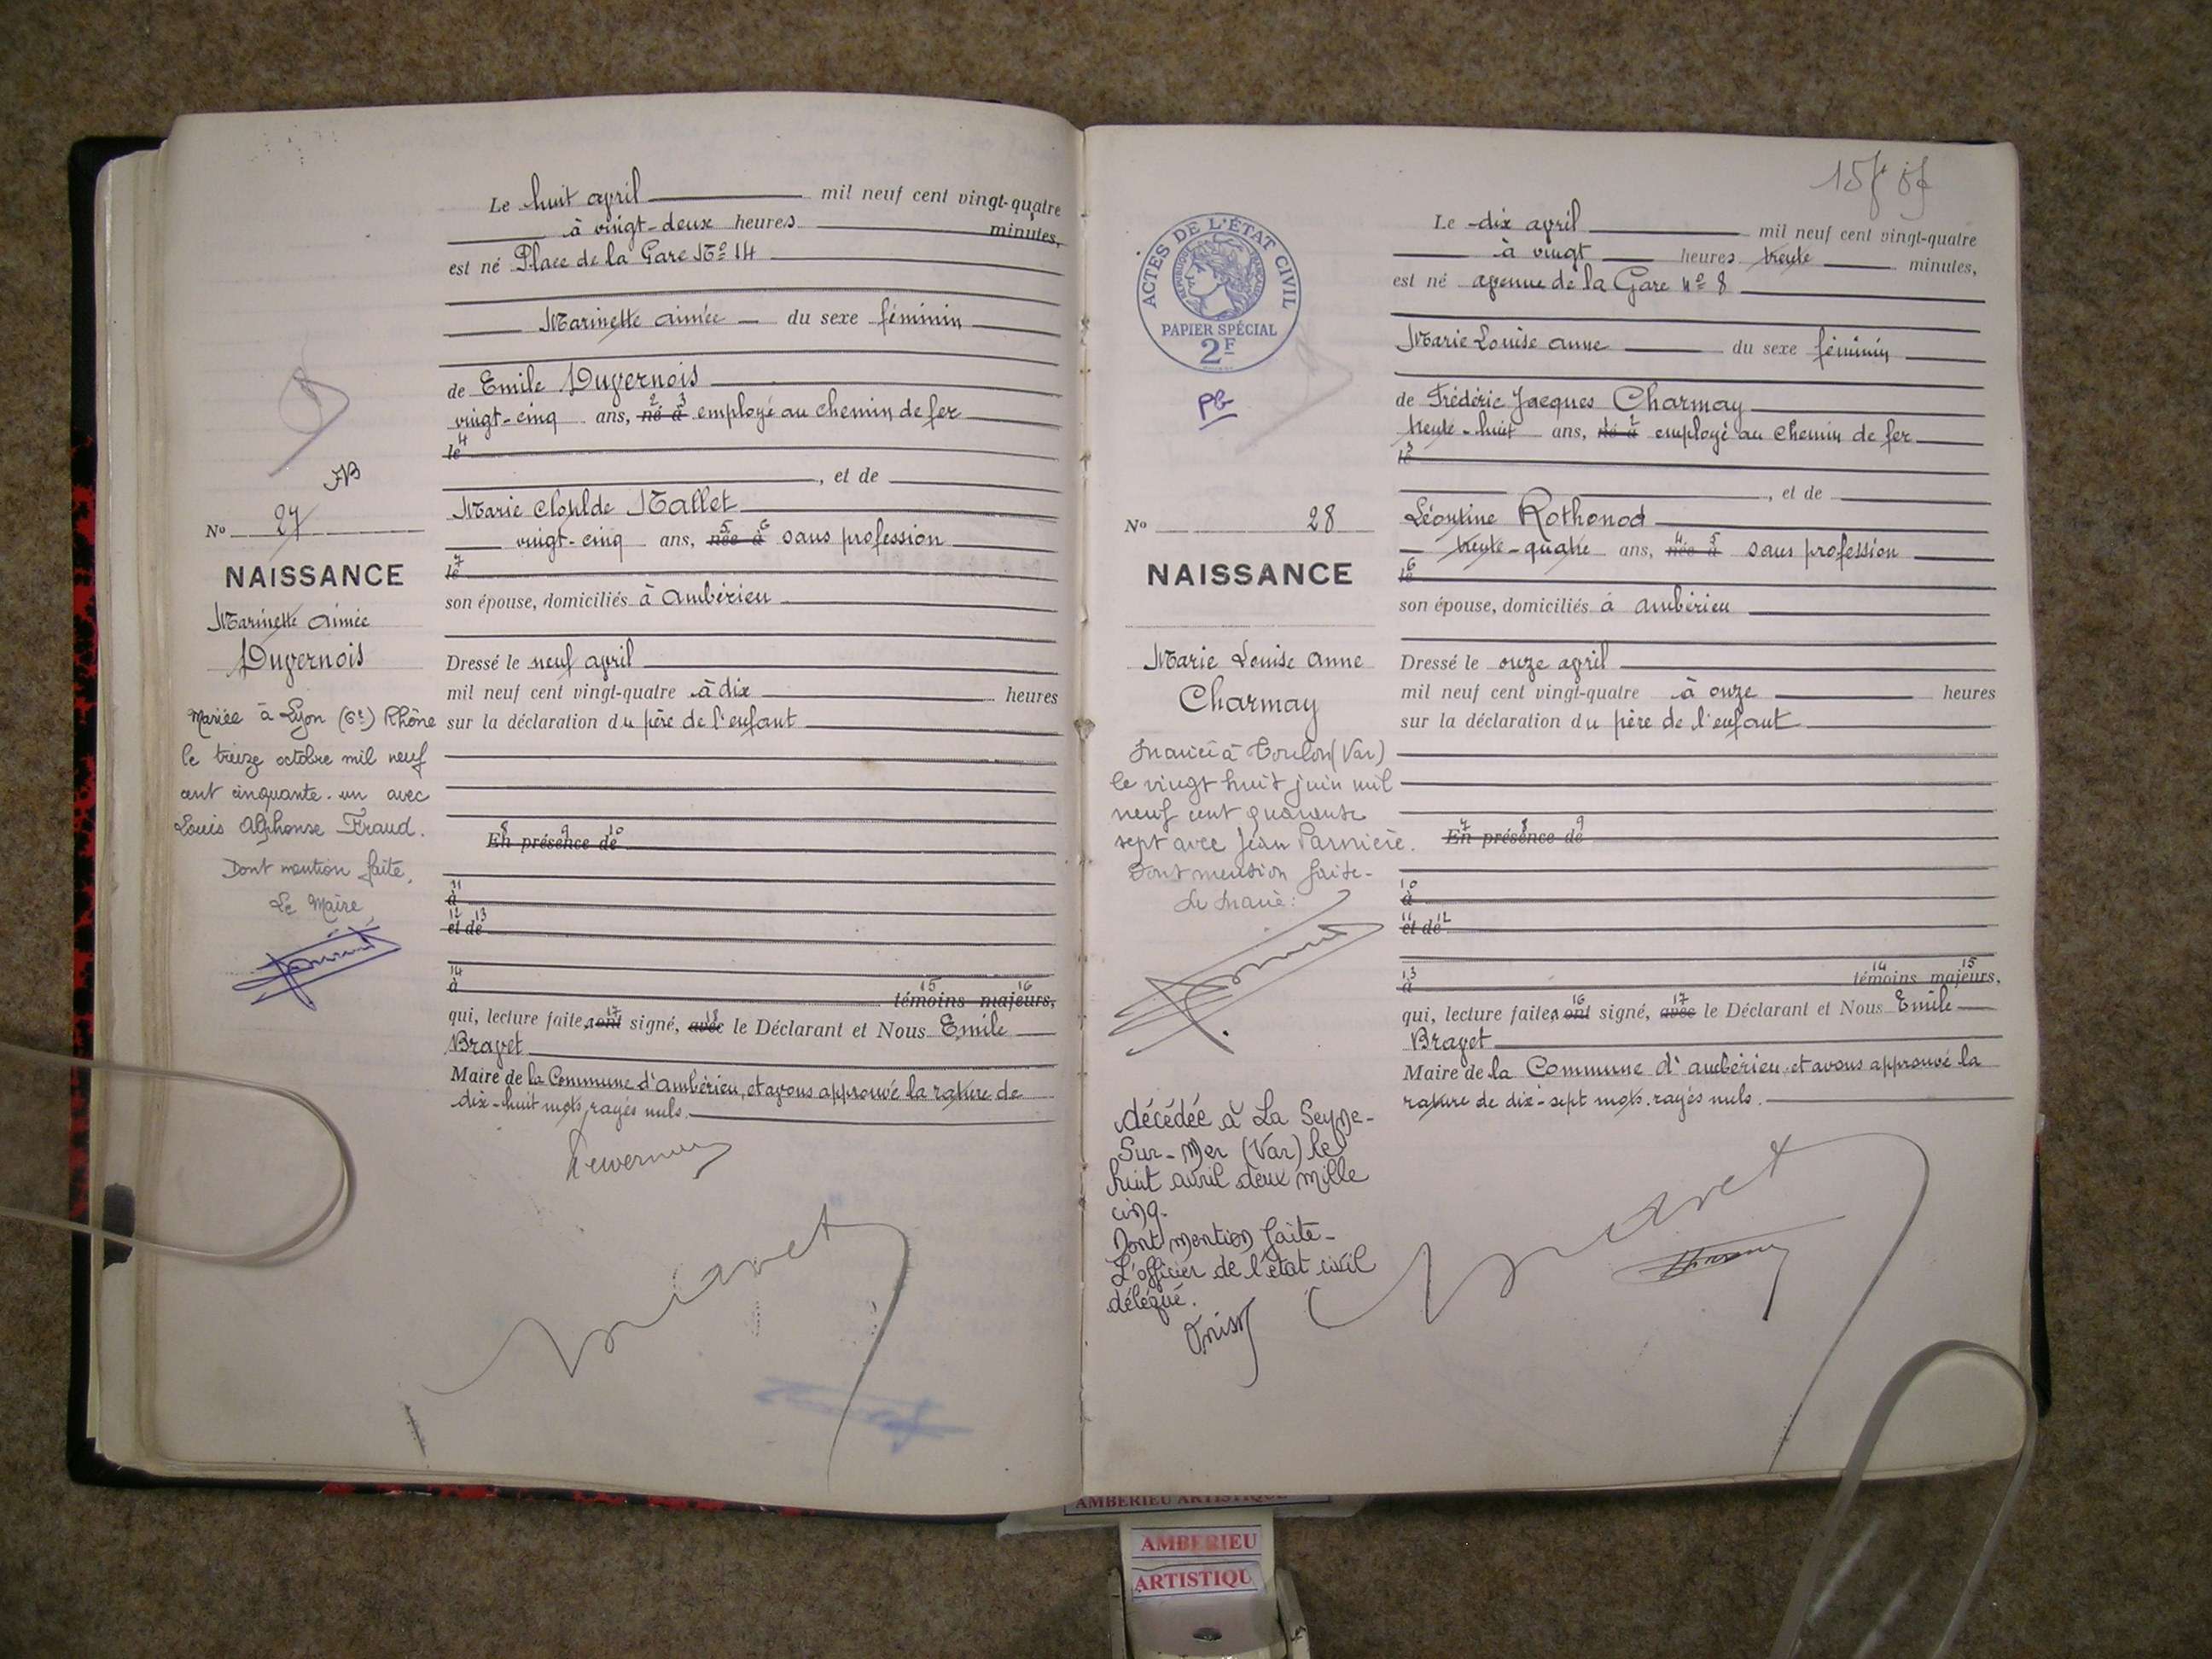 Le huit avril mil neuf cent vingt-quatre
à vingt-deux heures minutes,
est né Place de la Gare No 14
Marinette Aimée du sexe féminin
de Emile Duvernois
vingt-cinq ans, né à 2 3 employé au chemin de fer
le 4
, et de
Marie Clotilde Mallet
vingt-cinq ans, née à 5 6 sans profession
le 7
son épouse, domiciliés à Ambérieu
Dressé le neuf avril
mil neuf cent vingt-quatre à dix heures
sur la déclaration du père de l'enfant
En présence de 8 9 10
11
à
12 13
et de
14
à
15 16
témoins majeurs,
qui, lecture faite, ont 17 signé, avec 18 le Déclarant et Nous Emile
Bravet
Maire de la Commune d'Ambérieu, et avons approuvé la rature de
dix-huit mots rayés nuls.
No 27
NAISSANCE
Marinette Aimée
Duvernois
Mariée à Lyon (6e) Rhône
le treize octobre mil neuf
cent cinquante-un avec
Louis Alphonse Fraud.
Dont mention faite,
Le Maire
Bravet
ACTES DE L'ÉTAT CIVIL
RÉPUBLIQUE FRANÇAISE
PAPIER SPÉCIAL
2F
Le dix avril mil neuf cent vingt-quatre
à vingt heures trente minutes,
est né avenue de la Gare no 8
Marie Louise Anne du sexe féminin
de Frédéric Jacques Charmay
trente-huit ans, né à employé au chemin de fer
le 3
, et de
Léontine Rothonod
trente-quatre ans, née à 4 5 sans profession
le 6
son épouse, domiciliés à Ambérieu
Dressé le onze avril
mil neuf cent vingt-quatre à onze heures
sur la déclaration du père de l'enfant
En présence de 7 8 9
10
à
11 12
et de
13
à
14 15
témoins majeurs,
qui, lecture faite, ont 16 signé, avec 17 le Déclarant et Nous Emile
Bravet
Maire de la Commune d'Ambérieu, et avons approuvé la
rature de dix-sept mots rayés nuls.
No 28
NAISSANCE
Marie Louise Anne
Charmay
Mariée à Toulon (Var)
le vingt huit juin mil
neuf cent quarante
sept avec Jean Parnière.
Dont mention faite-
Le Maire:
décédée à La Seyne-
Sur-Mer (Var) le
huit avril deux mille
cinq.
Dont mention faite-
L'officier de l'état civil
délégué.
Bravet
AMBERIEU ARTISTIQUE
AMBERIEU
ARTISTIQU